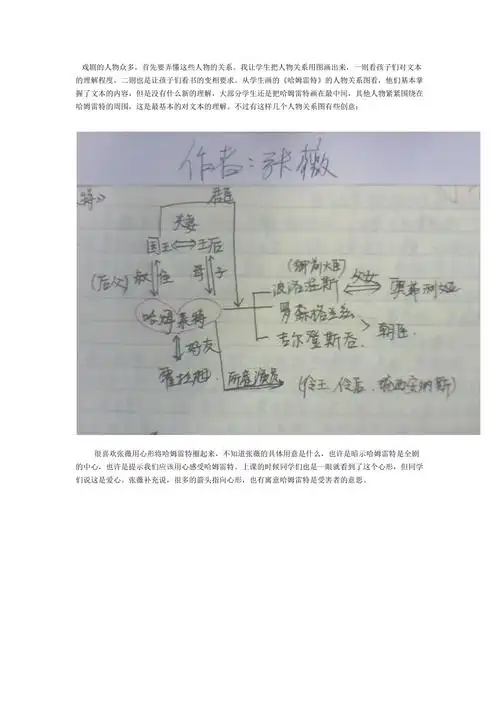 戏剧的人物众多，首先要弄懂这些人物的关系。我让学生把人物关系用图画出来，一则看孩子们对文本
的理解程度，二则也是让孩子们看书的变相要求。从学生画的《哈姆雷特》的人物关系图看，他们基本掌
握了文本的内容，但是没有什么新的理解，大部分学生还是把哈姆雷特画在最中间，其他人物紧紧围绕在
哈姆雷特的周围，这是最基本的对文本的理解。不过有这样几个人物关系图有些创意：
作者：张薇
特》
君臣
夫妻
国王⇔王后
(御前大臣)
(后父)叔侄 母子
波洛涅斯 父女 奥菲利娅
哈姆莱特
罗森格兰兹
吉尔登斯吞 朝臣
好友
霍拉旭 所看演员 (伶王、伶后、琉西安纳斯)
很喜欢张薇用心形将哈姆雷特圈起来，不知道张薇的具体用意是什么，也许是暗示哈姆雷特是全剧
的中心，也许是提示我们应该用心感受哈姆雷特。上课的时候同学们也是一眼就看到了这个心形，但同学
们说这是爱心。张薇补充说，很多的箭头指向心形，也有寓意哈姆雷特是受害者的意思。